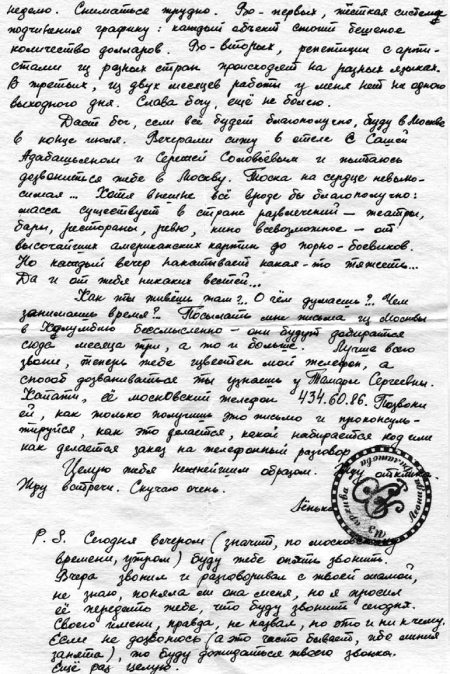 неделю. Сниматься трудно. Во-первых, жёсткая система
подчинения графику: каждый объект стоит бешеное
количество долларов. Во-вторых, репетиции с арти-
стами из разных стран происходят на разных языках.
В третьих, из двух месяцев работы у меня нет ни одного
выходного дня. Слава богу, ещё не болею.
Даст бог, если всё будет благополучно, буду в Москве
в конце июля. Вечерами сижу в отеле с Сашей
Адабашьяном и Серёжей Соловьёвым и пытаюсь
дозвониться тебе в Москву. Тоска на сердце невыно-
симая... Хотя внешне всё вроде бы благополучно:
масса существует в стране развлечений — театры,
бары, рестораны, ревю, кино всевозможное — от
высочайших американских картин до порно-боевиков.
Но каждый вечер накатывает какая-то тяжесть...
Да и от тебя никаких вестей...
Как ты живёшь там?.. О чём думаешь?.. Чем
занимаешь время?.. Посылать мне письма из Москвы
в Колумбию бессмысленно — они будут добираться
сюда месяца три, а то и больше. Лучше всего
звони, теперь тебе известен мой телефон, а
способ дозваниваться ты узнаешь у Тамары Сергеевны.
Кстати, её московский телефон 434.60.86. Позвони
ей, как только получишь это письмо и проконсуль-
тируйся, как это делается, какой набирается код или
как делается заказ на телефонный разговор.
Целую тебя нежнейшим образом. Жду
Жду встречи. Скучаю очень.
Лёнька
P.S. Сегодня вечером (значит, по московскому
времени, утром) буду тебе опять звонить.
Вчера звонил и разговаривал с твоей мамой,
не знаю, поняла ли она меня, но я просил
её передать тебе, что буду звонить сегодня.
Своего имени, правда, не назвал, но это и ни к чему.
Если не дозвонюсь (а это часто бывает, ибо линия
занята), то буду дожидаться твоего звонка.
Ещё раз целую.